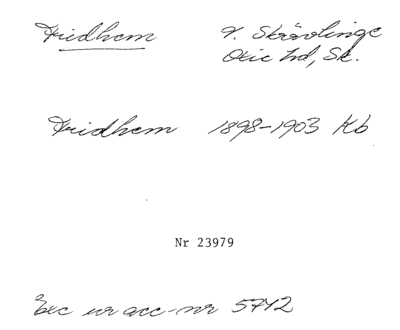 Fridhem V. Skrävlinge
Oxie hd, Sk.
Fridhem 1898-1903 Kb
Nr 23979
Exc ur acc-nr 5742